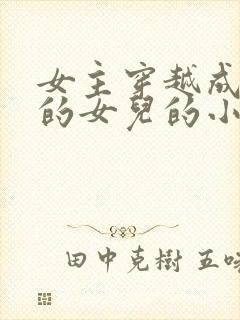 女主穿越成
的女兒的小
田中克樹 五